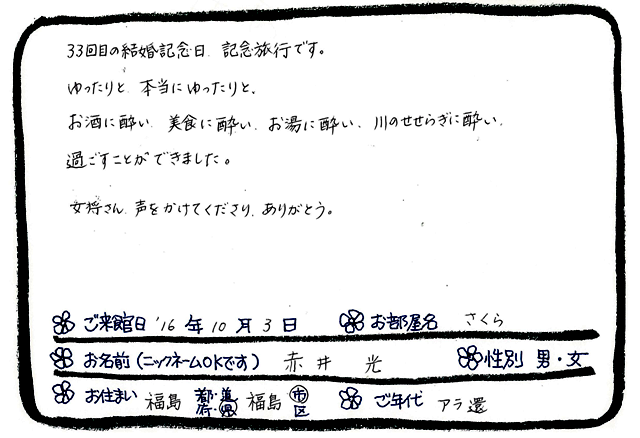 33回目の結婚記念日、記念旅行です。
ゆったりと、本当にゆったりと、
お酒に酔い、美食に酔い、お湯に酔い、川のせせらぎに酔い、
過ごすことができました。
女将さん、声をかけてくださり、ありがとう。
ご来館日 '16 年 10 月 3 日 お部屋名 さくら
お名前(ニックネームOKです) 赤井 光 性別 男・女
お住まい 福島 都・道・府・県 福島 市・区 ご年代 アラ還